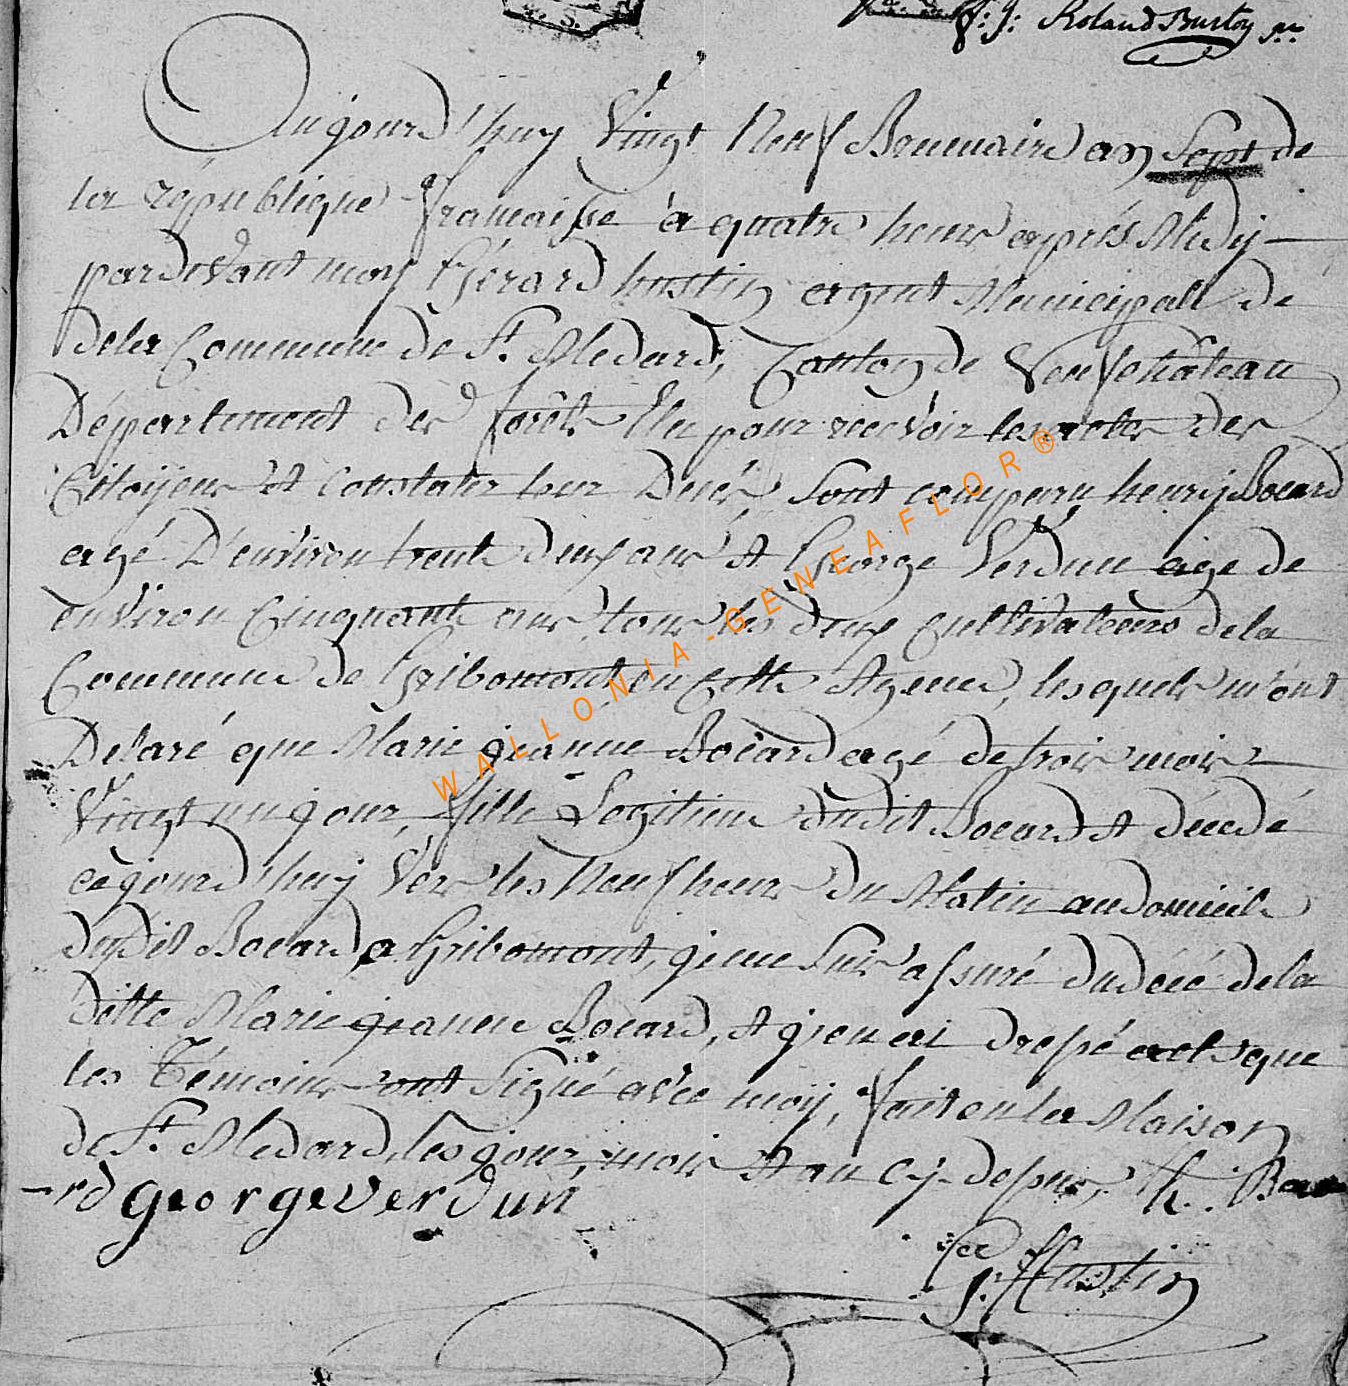 f: j: Roland Burton
Aujourd'huy Vingt Neuf Brumaire an Sept de
la république françaisse à quatre heure après Midy
pardevant moy Gérard hustin agent Municipall de
dela Commune de St. Medard, Canton de Neufchâteau
Département der forêt Elu pour recevoir les actes der
Citoÿens et Constater leur Decés Sont comparu henrÿ Bocard
agé D'environ trente deux ans et George Verdun age de
environ Cinquante ans, tous les deux cultivateurs dela
Commune de Gribomont en Cette Agence, lesquels m'ont
Delaré que Marie jeanne Bocard agé de trois mois
Vingt un jour, fille Legitime dudit Bocard et décedé
cejourd'huÿ Ver les Neuf heure du Matin au domicile
dudit Bocard, a Gribomont, je me suis assuré du décé dela
ditte Marie jeanne Bocard, et j'en ai dressé acte que
les Témoins ont Signé avec moÿ, fait en la Maison
de St. Medard, les jour, mois et an cy-dessus, h. Boca
-rd georgeverdun
G: Hustin
WALLONIA-GENEAFLOR®